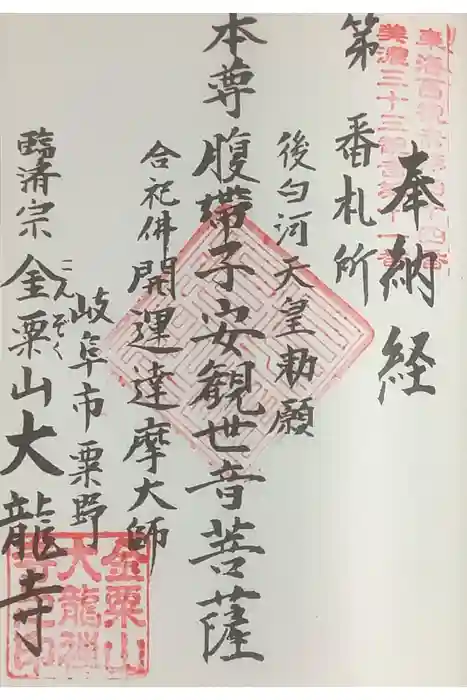 東海百観音
美濃三十三観音第十一番
奉納経
第 番札所
後白河天皇勅願
本尊腹帯子安観世音菩薩
合祀佛開運達摩大師
岐阜市粟野
こんぞく
臨済宗金粟山大龍寺
金粟山
大龍禅
寺之印